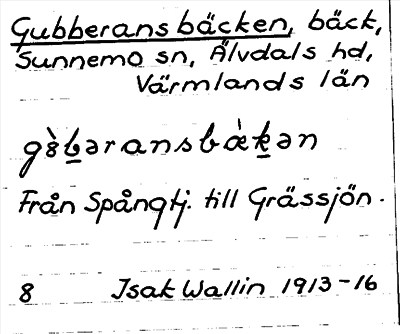 Gubberansbäcken, bäck,
Sunnemo sn, Älvdals hd,
Värmlands län
gö̀b̲əransbä̀k̲ən
Från Spångtj. till Grässjön.
8 Isak Wallin 1913-16